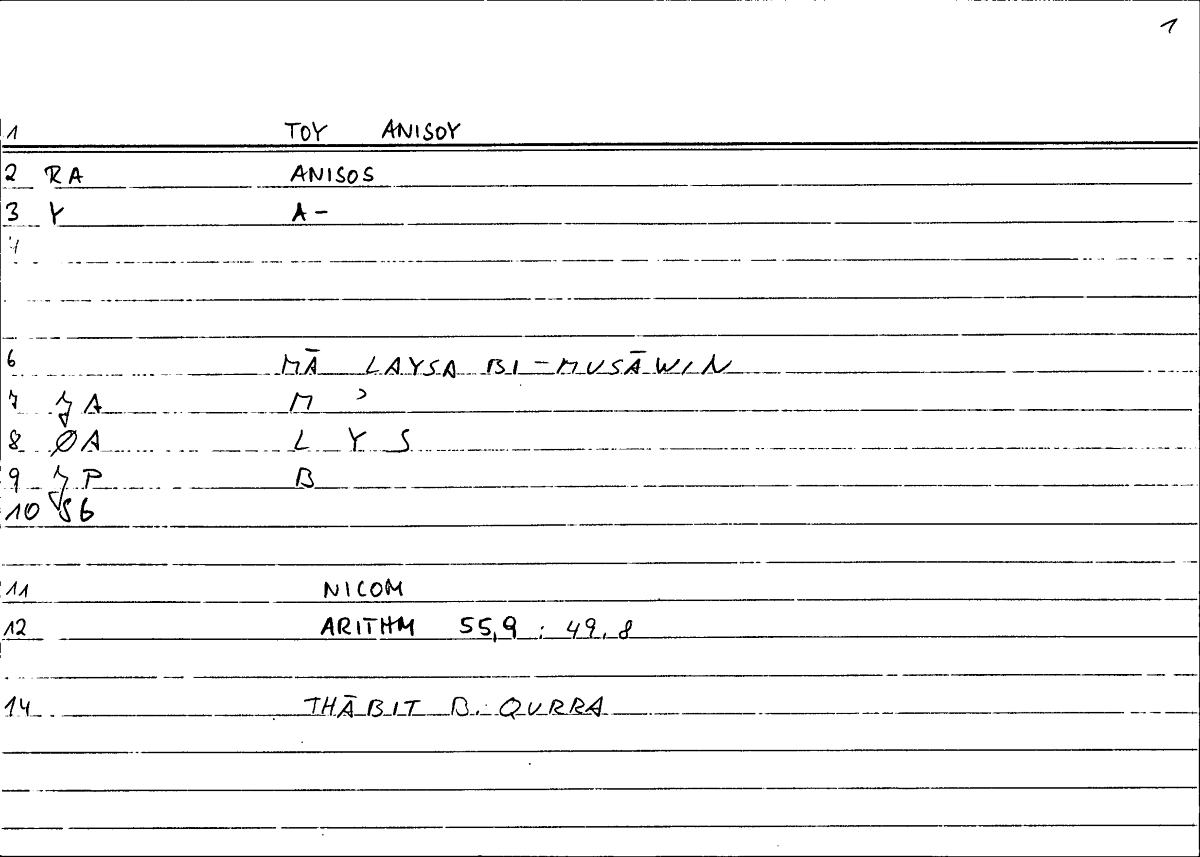 1
1 TOY ANISOY
2 RA ANISOS
3 Y A-
4
6 MĀ LAYSA BI-MUSĀWIN
7 A M ʾ
8 ØA L Y S
9 P B
10
11 NICOM
12 ARITHM 55,9 : 49,8
14 THĀBIT B. QURRA